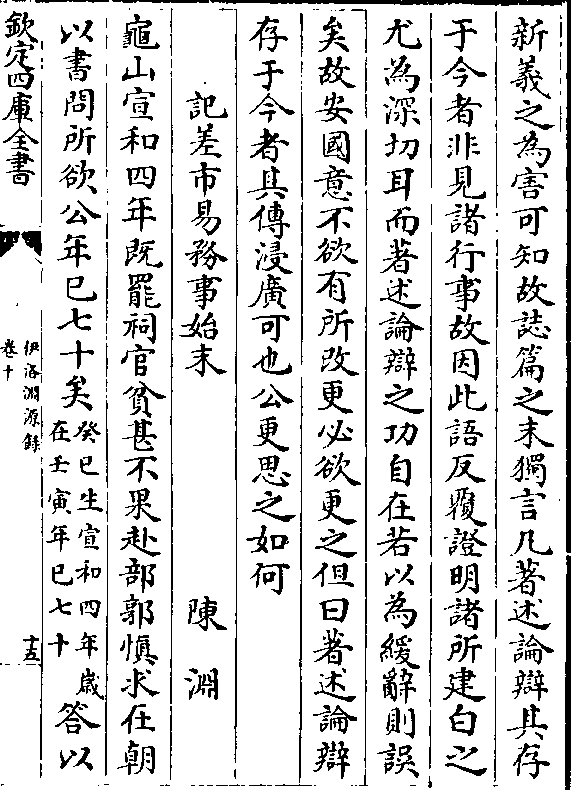 新義之為害可知故誌篇之末獨言凡著述論辯其存
于今者非見諸行事故因此語反覆證明諸所建白之
尤為深切耳而著述論辯之功自在若以為緩辭則誤
矣故安國意不欲有所改更必欲更之但曰著述論辯
存于今者其傳浸廣可也公更思之如何
記差市易務事始末　陳淵
龜山宣和四年既罷祠官貧甚不果赴部郭慎求在朝
以書問所欲公年已七十矣癸巳生宣和四年歲在壬寅年已七十答以
欽定四庫全書
伊洛淵源錄
卷十
十五